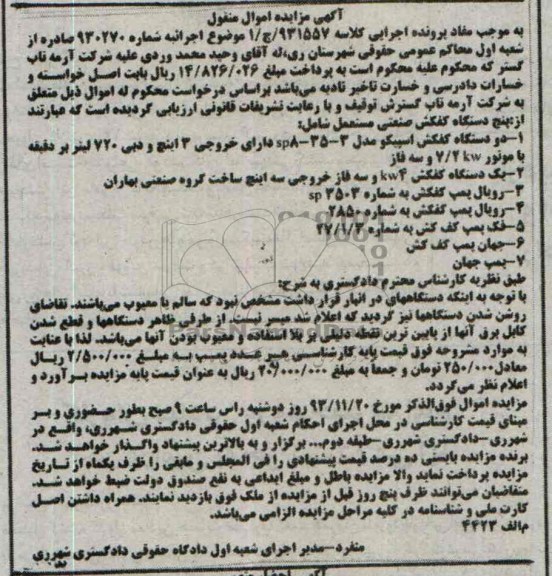 آگهی مزایده اموال منقول
به موجب مفاد پرونده اجرایی کلاسه ۹۳۱۵۵۷/ج/۱ موضوع اجرائیه شماره ۹۳۰۲۷۰ صادره از
شعبه اول محاکم عمومی حقوقی شهرستان ری،له آقای وحید محمد وردی علیه شرکت آرمه تاب
گستر که محکوم علیه محکوم است به پرداخت مبلغ ۱۴/۸۲۶/۰۲۶ ریال بابت اصل خواسته و
خسارات دادرسی و خسارت تاخیر تادیه می‌باشد براساس درخواست محکوم له اموال ذیل متعلق
به شرکت آرمه تاب گسترش توقیف و با رعایت تشریفات قانونی ارزیابی گردیده است که عبارتند
از:پنج دستگاه کفکش صنعتی مستعمل شامل:
۱-دو دستگاه کفکش اسپیکو مدل ۳-۳۵-sp۸ دارای خروجی ۳ اینچ و دبی ۷۲۰ لیتر بر دقیقه
با موتور ۷/۲ kw و سه فاز
۲-یک دستگاه کفکش kw۴ و سه فاز خروجی سه اینچ ساخت گروه صنعتی بهاران
۳-رویال پمپ کفکش به شماره ۳۵۰۳ sp
۴-رویال پمپ کفکش به شماره ۲۸۵۰
۵-فک پمپ کف کش به شماره ۲۷/۱/۳
۶-جهان پمپ کف کش
۷-پمپ جهان
طبق نظریه کارشناس محترم دادگستری به شرح:
با توجه به اینکه دستگاههای در انبار قرار داشت مشخص نبود که سالم یا معیوب می‌باشند. تقاضای
روشن شدن دستگاهها نیز گردید که اعلام شد میسر نیست. از طرفی ظاهر دستگاهها و قطع شدن
کابل برق آنها از پایین ترین نقطه دلیلی بر بلا استفاده و معیوب بودن آنها می‌باشد. لذا با عنایت
به موارد مشروحه فوق قیمت پایه کارشناسی هر عدد پمپ به مبلغ ۲/۵۰۰/۰۰۰ ریال
معادل ۲۵۰/۰۰۰ تومان و جمعاً به مبلغ ۲۰/۰۰۰/۰۰۰ ریال به عنوان قیمت پایه مزایده برآورد و
اعلام نظر می‌گردد.
مزایده اموال فوق‌الذکر مورخ ۹۳/۱۱/۲۰ روز دوشنبه راس ساعت ۹ صبح بطور حضوری و بر
مبنای قیمت کارشناسی در محل اجرای احکام شعبه اول حقوقی دادگستری شهرری، واقع در
شهرری-دادگستری شهرری-طبقه دوم... برگزار و به بالاترین پیشنهاد واگذار خواهد شد.
برنده مزایده بایستی ده درصد قیمت پیشنهادی را فی المجلس و مابقی را ظرف یکماه از تاریخ
مزایده پرداخت نماید والا مزایده باطل و مبلغ ابداعی به نفع صندوق دولت ضبط خواهد شد.
متقاضیان می‌توانند ظرف پنج روز قبل از مزایده از ملک فوق بازدید نمایند. همراه داشتن اصل
کارت ملی و شناسنامه در کلیه مراحل مزایده الزامی می‌باشد.
م‌الف ۴۴۲۳
منفرد-مدیر اجرای شعبه اول دادگاه حقوقی دادگستری شهرری